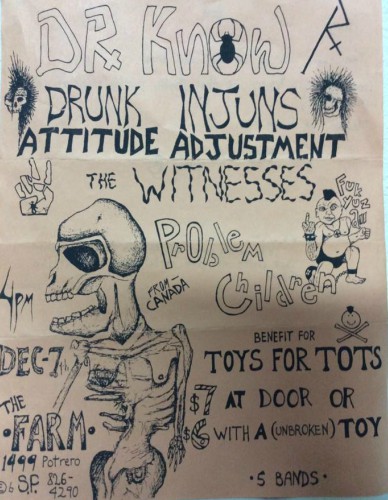 DR. KNOW Rx
DRUNK INJUNS
ATTITUDE ADJUSTMENT
THE WITNESSES
PROBlem
Children
FROM CANADA
4PM
DEC-7th
BENEFIT FOR
TOYS FOR TOTS
$7 AT DOOR OR
$6 WITH A (UNBROKEN) TOY
THE
·FARM·
1499 Potrero
S.F. 826-
4290
·5 BANDS·